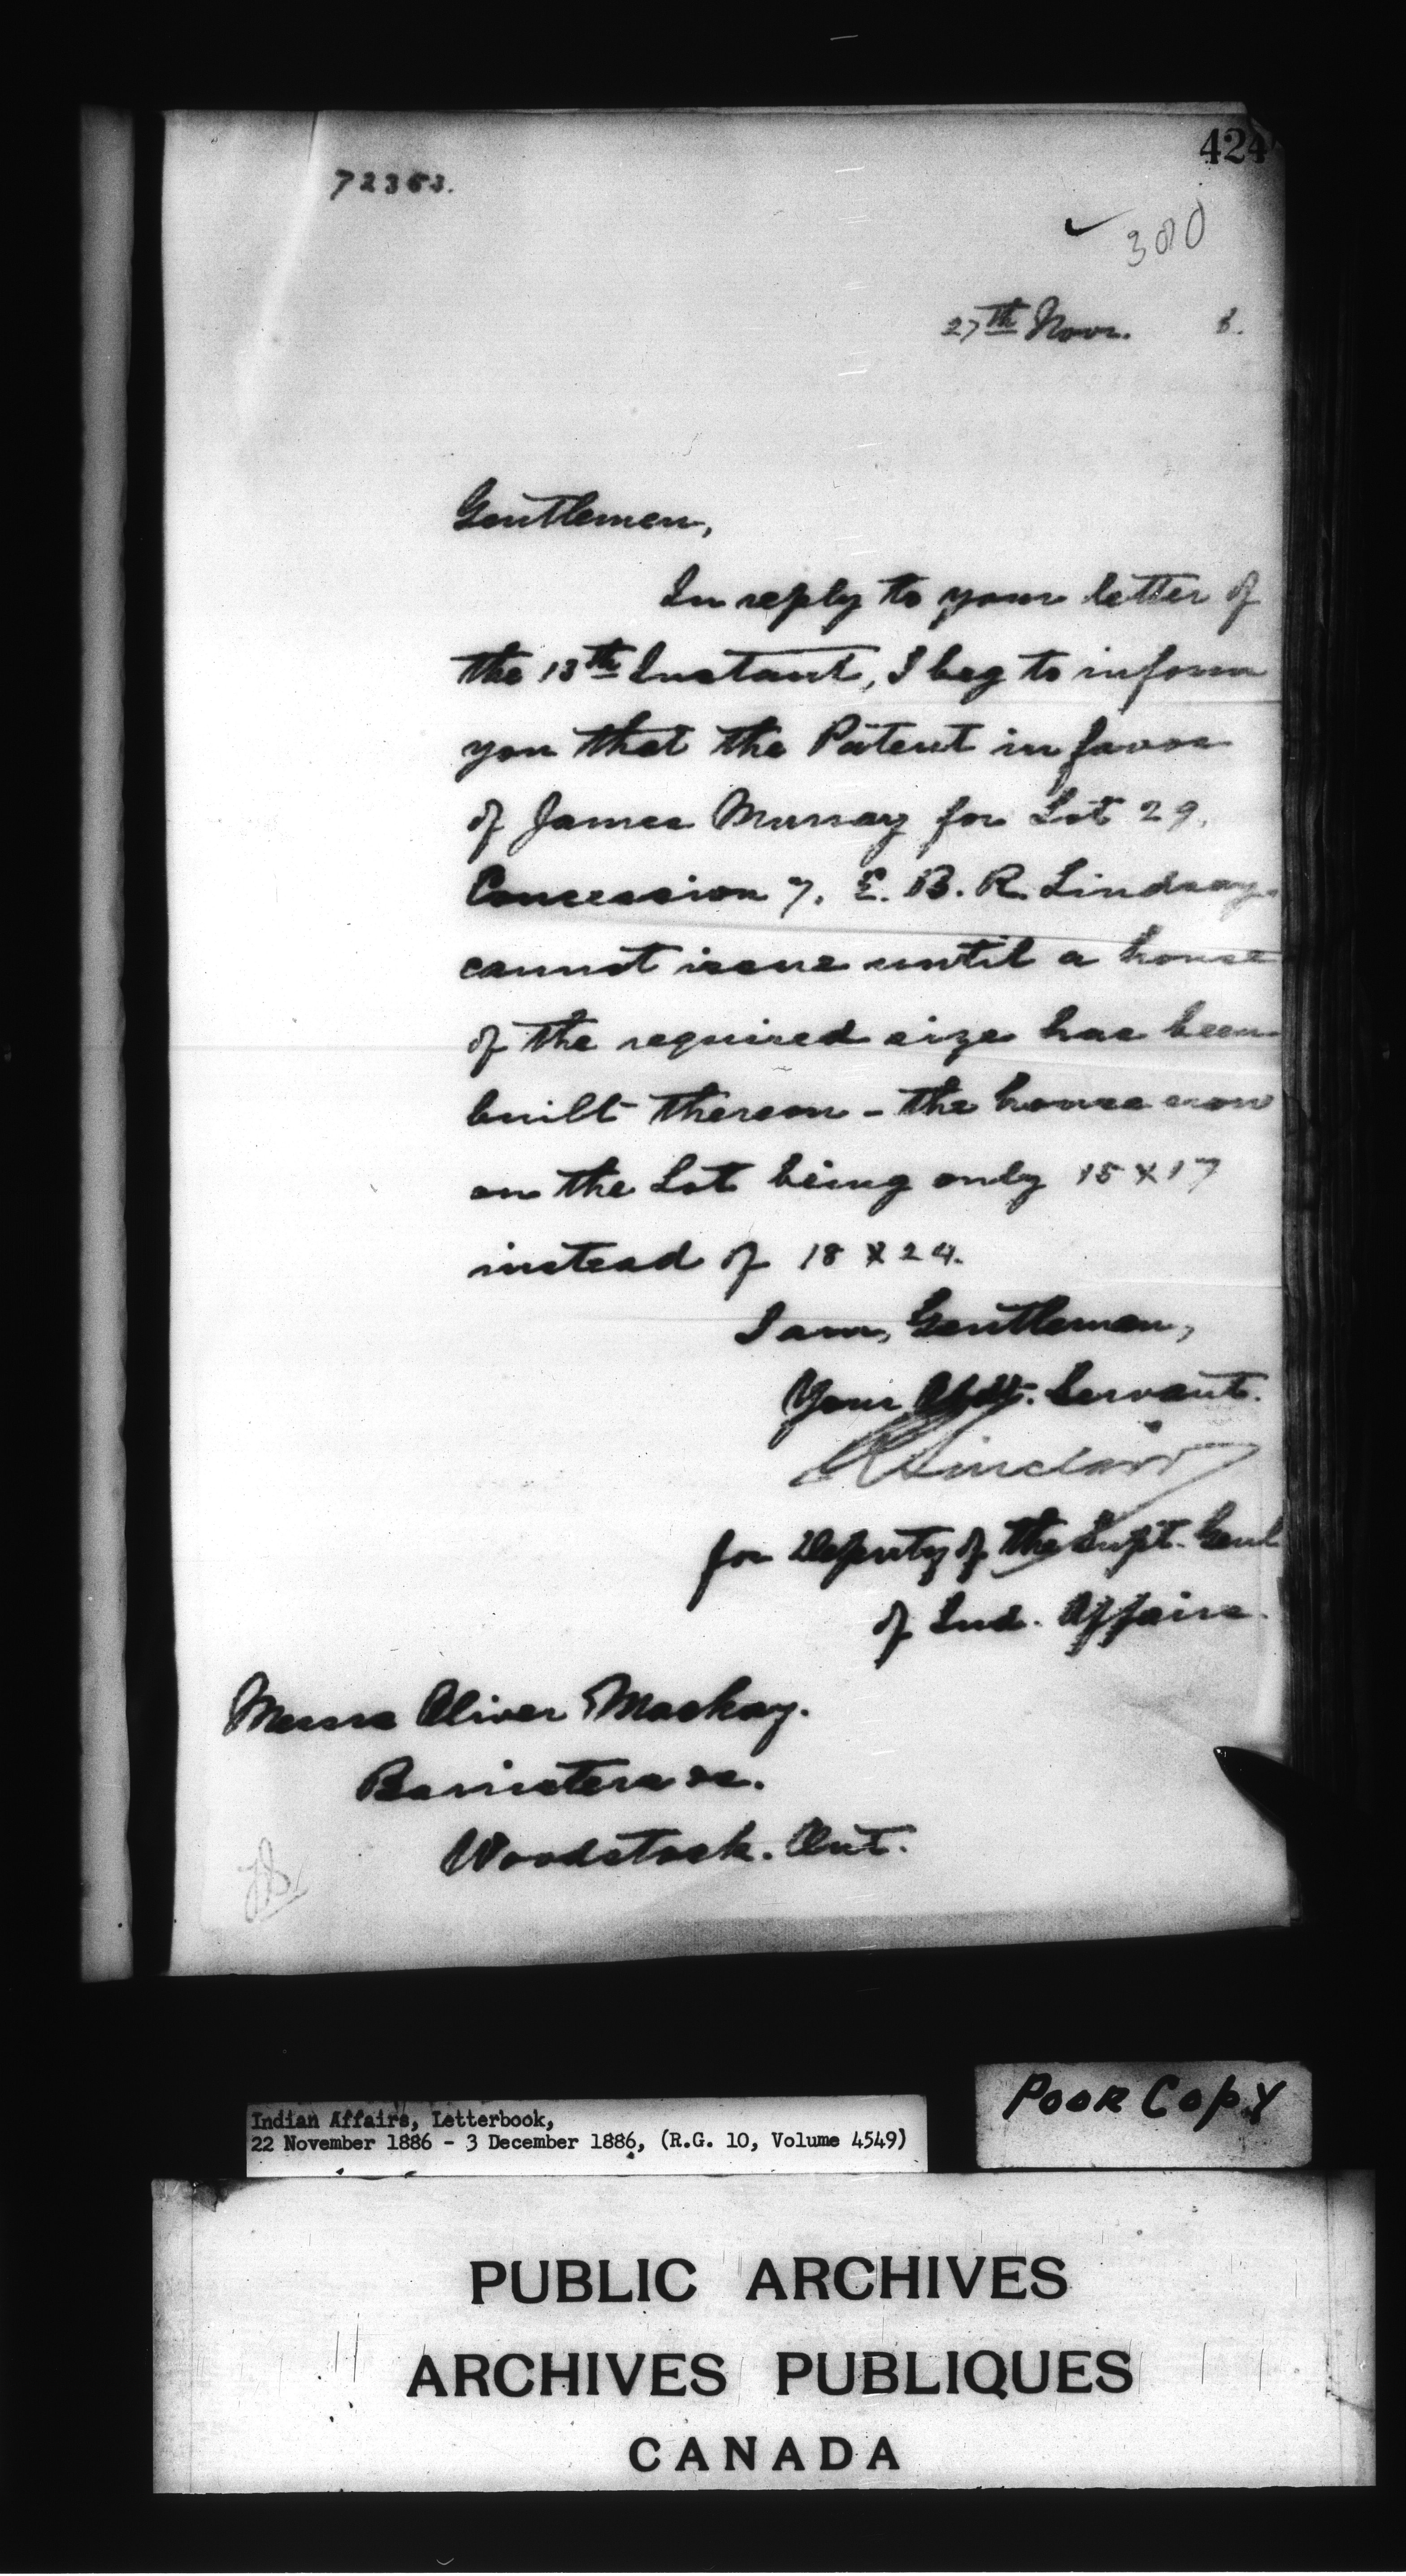 424
72353.
380
27th Novr. 6.
Gentlemen,
In reply to your letter of
the 13th Instant, I beg to inform
you that the Patent in favor
of James Murray for Lot 29.
Concession 7. E. B. R. Lindsay.
cannot issue until a house
of the required size has been
built thereon - the house now
on the Lot being only 15 X 17
instead of 18 X 24.
I am, Gentlemen,
Your Obdt. Servant.
Sinclair
for Deputy of the Supt. Genl
of Ind. Affairs.
Messrs Oliver Mackay.
Barristers &c.
Woodstock. Ont.
POOR COPY
Indian Affairs, Letterbook,
22 November 1886 - 3 December 1886, (R.G. 10, Volume 4549)
PUBLIC ARCHIVES
ARCHIVES PUBLIQUES
CANADA